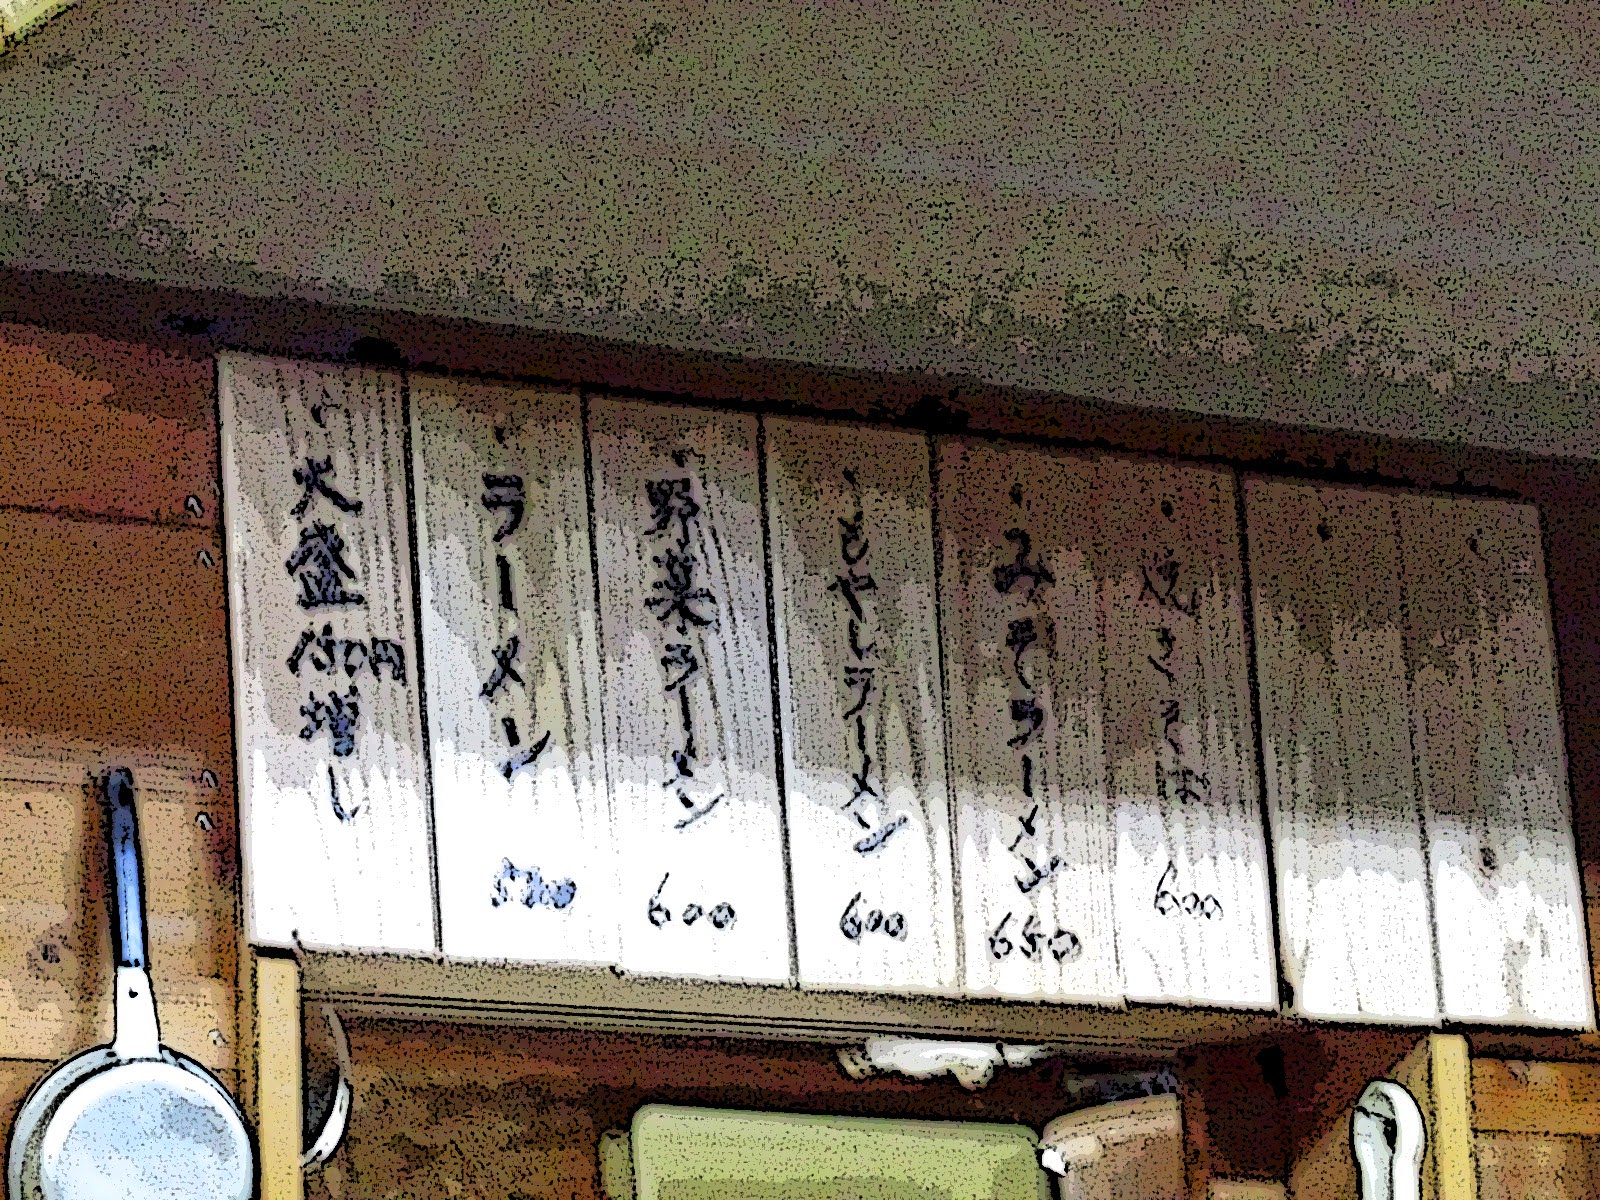 焼きそば 600
みそラーメン 650
もやしラーメン 600
野菜ラーメン 600
ラーメン 500
大盛 円増し